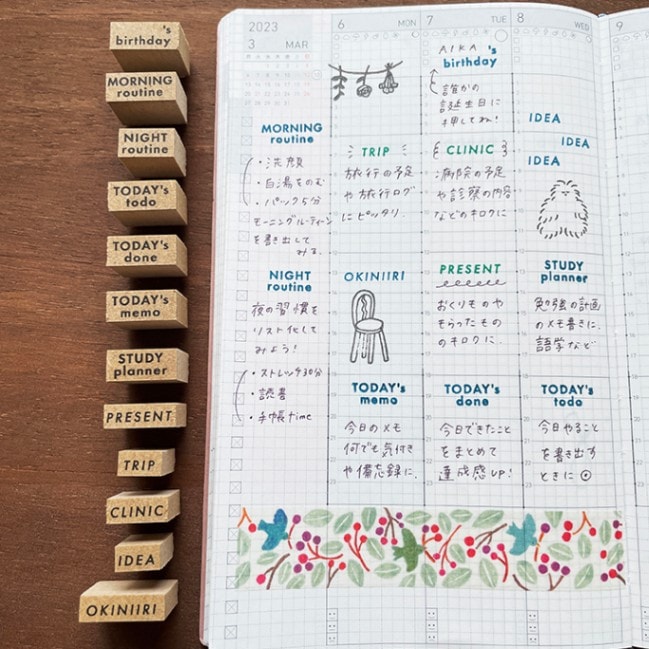 's
birthday
MORNING
routine
NIGHT
routine
TODAY's
todo
TODAY's
done
TODAY's
memo
STUDY
planner
PRESENT
TRIP
CLINIC
IDEA
OKINIIRI
2023
3 MAR
MORNING
routine
・洗顔
・白湯をのむ
・パック5分
モーニングルーティーン
を書き出して
みる
NIGHT
routine
夜の習慣を
リスト化して
みよう!
・ストレッチ30分
・読書
・手帳time
6 MON
TRIP
旅行の予定
や旅行ログ
にピッタリ
OKINIIRI
TODAY's
memo
今日のメモ
何でも気付き
や備忘録に.
7 TUE
AIKA 's
birthday
誰かの
誕生日に
押してね!
CLINIC
病院の予定
や診察の内容
などのキロクに
PRESENT
おくりものや
もらったもの
のキロクに.
TODAY's
done
今日できたこと
をまとめて
達成感UP!
8 WED
IDEA
IDEA
IDEA
STUDY
planner
勉強の計画
のメモ書きに.
語学など
TODAY's
todo
今日やること
を書き出す
ときに
9